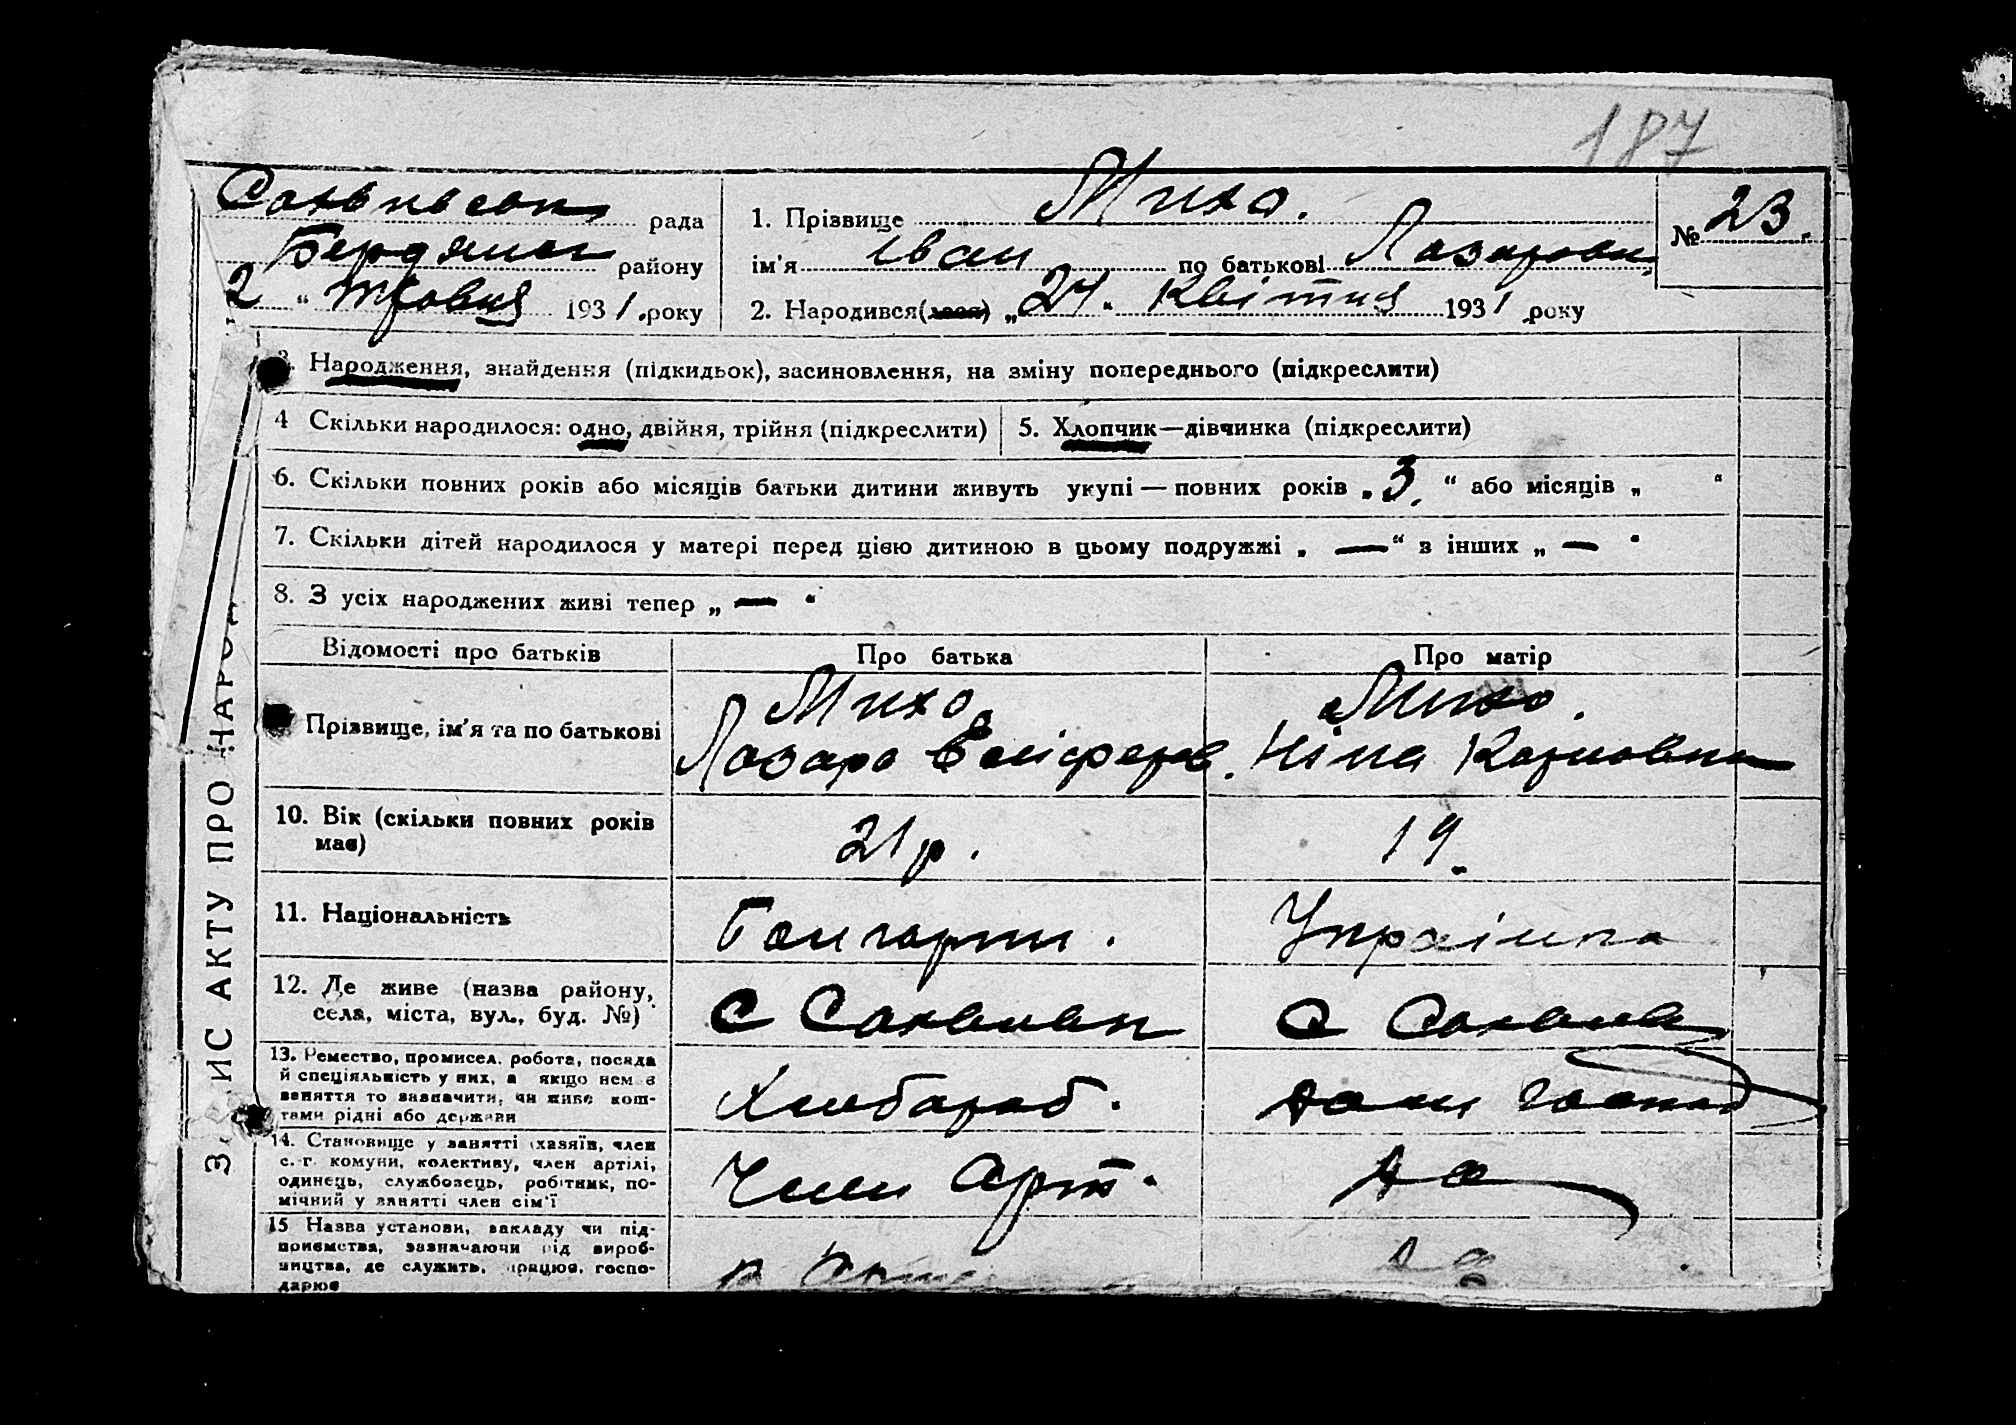 187
рада
1. Прізвище Михо.
№ 23.
Бердянськ району
ім'я Іван по батькові Лазарович
2 " травня 1931 року
2. Народився(лася) „24" квітня 1931 року
3. Народження, знайдення (підкидьок), засиновлення, на зміну попереднього (підкреслити)
4 Скільки народилося: одно, двійня, трійня (підкреслити)
5. Хлопчик—дівчинка (підкреслити)
6. Скільки повних років або місяців батьки дитини живуть укупі — повних років „3." або місяців „ "
7. Скільки дітей народилося у матері перед цією дитиною в цьому подружжі „ — " з інших „ — "
8. З усіх народжених живі тепер „ — "
Відомості про батьків
Про батька
Про матір
Прізвище, ім'я та по батькові
Михо
Лазарь
Михо.
Ніна Карповна
10. Вік (скільки повних років
має)
21 р.
19.
11. Національність
Болгарин.
Українка
12. Де живе (назва району,
села, міста, вул., буд. №)
С
С
13. Ремество, промисел, робота, посада
й спеціяльність у них, а якщо нема
заняття то зазначити, чи живе кош-
тами рідні або держави
Хлібороб.
Дом господ
14. Становище у занятті (хазяїн, член
с.-г. комуни, колективу, член артілі,
одинець, службовець, робітник, по-
мічний у занятті член сім'ї
Член Арт.
15 Назва установи, закладу чи під-
приємства, зазначаючи рід вироб-
ництва, де служить, працює, госпо-
дарює
ЗАПИС АКТУ ПРО НАРОД